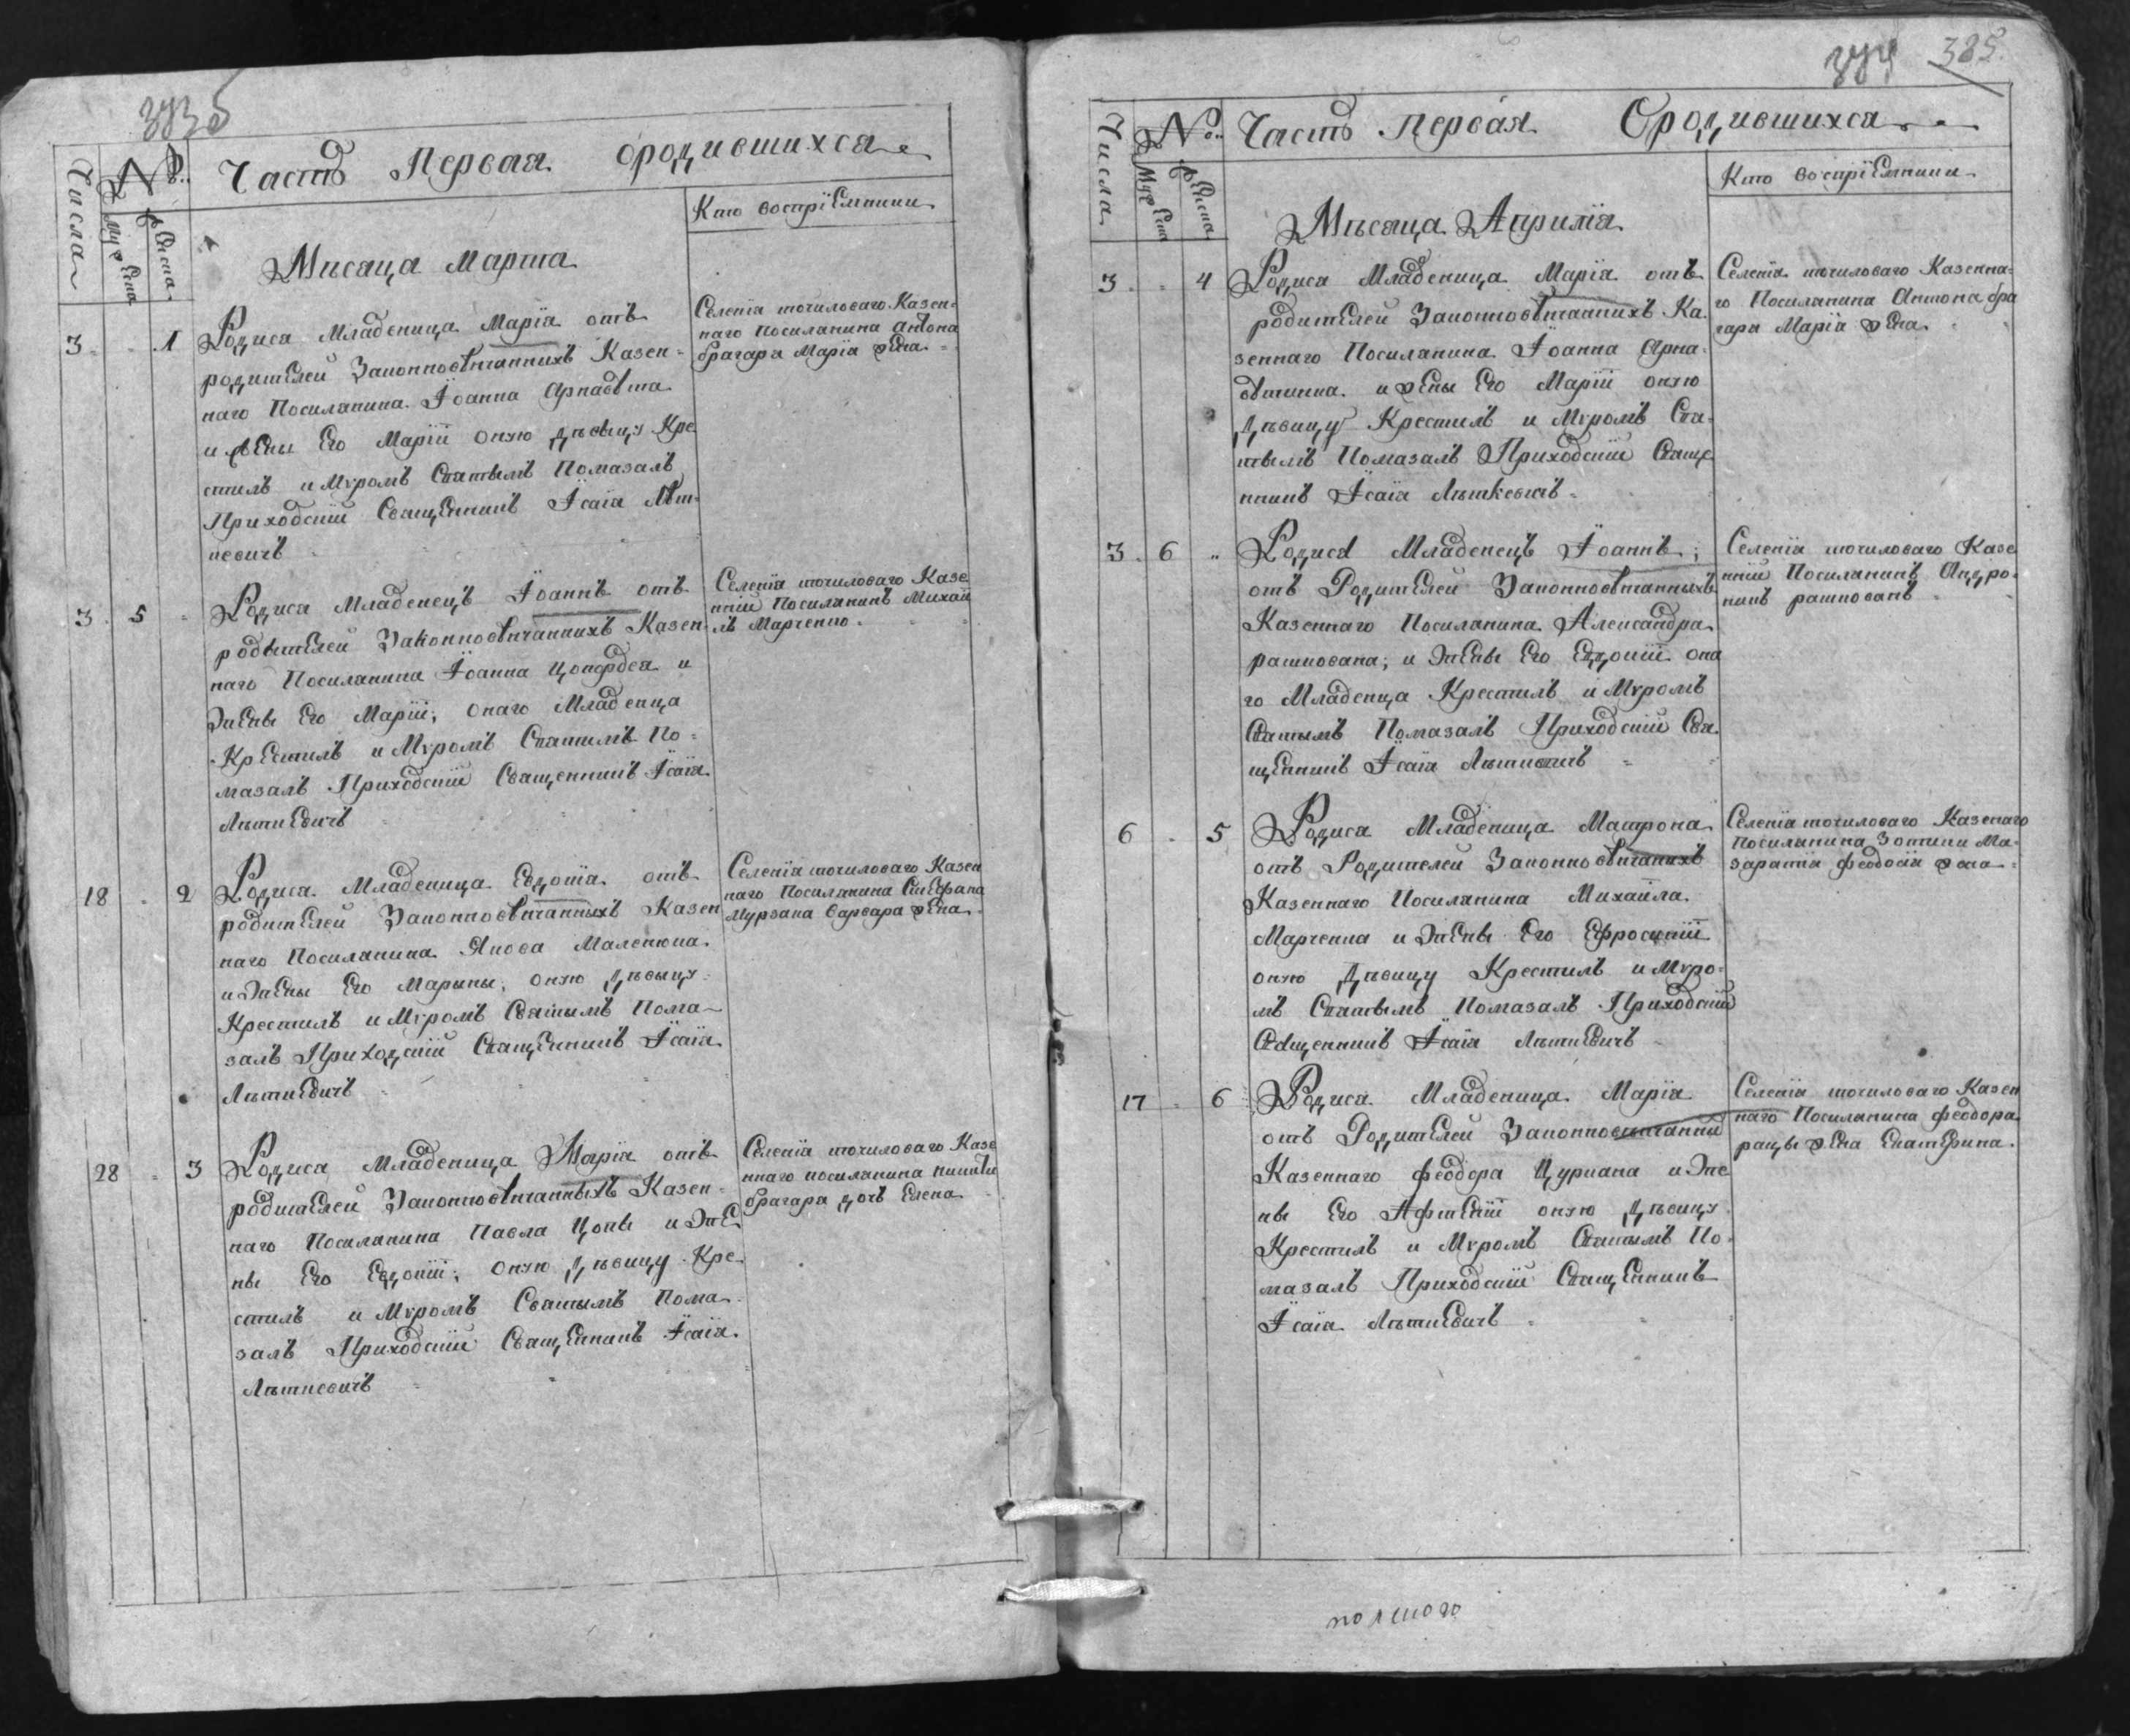 Числа
№
Мужеска
Женска
Часть Первая ородившихся
Кто воспріемники
Мисяца Марта
3 1
Родися Младеница Марїя отъ
родителей Законновѣнчаннихъ Казен=
наго Посилянина Іоанна Арнавута
и жены Его Маріи оную дѣвицу Кре
стилъ и Мѵромъ Святымъ Помазалъ
Приходскій Священникъ Ісаія Лѣт=
кевичъ
Селенїя точиловаго Казен=
наго Посилянина Антона
брагаря Марїя жена
3 5
Родися Младенецъ Іоаннъ отъ
родытелей Законновѣнчаннихъ Казен
наго Посилянина Іоанна
жены Его Маріи, онаго Младенца
Крестилъ и Мѵромъ Святимъ По=
мазалъ Приходскій Священникъ Ісаія
Лѣткевичъ
Селенїя точиловаго Казе
нній Посилянинъ Михаи
лъ Марченко
18 2
Родися Младеница Евдокїя отъ
родителей Законновѣнчанныхъ Казен
наго Посилянина Якова Маленюка
и жены Его Марыны, оную дѣвыцу
Крестилъ и Мѵромъ Святымъ Пома=
залъ Приходскій Священникъ Ісаія
Лѣткевичъ
Селенїя точиловаго Казен
наго Посилянина Стефана
Мурзака Варвара жена
28 3
Родися Младеница Марїя отъ
родителей Законновѣнчанныхъ Казен=
наго Посилянина Павла Цопы и же
ны Его Евдокіи, оную дѣвицу Кре
стилъ и Мѵромъ Святымъ Пома
залъ Приходскій Священникъ Ісаія
Лѣткевичъ
Селенїя точиловаго Казе
ннаго посилянина никиты
брагаря дочъ Елена
385
Числа
№
Мужеска
Женска
Часть Первая Ородившихся
Кто воспріемники
Мѣсяца Априлїя
3 4
Родися Младеница Марїя отъ
родителей Законновѣнчаннихъ Ка=
зеннаго Посилянина Іоанна Арна=
и жены Его Маріи оную
Дѣвицу Крестилъ и Мѵромъ Свя=
тымъ Помазалъ Приходскій Свяще
нникъ Ісаія Лѣткевичъ
Селенїя точиловаго Казенна=
го Посилянина Антона бра
гаря Марїя жена
3 6
Родися Младенецъ Іоаннъ,
отъ Родителей Законновѣнчанныхъ
Казеннаго Посилянина Александра
рашкована, и жены Его Евдокіи она
го Младенца Крестилъ и Мѵромъ
Святымъ Помазалъ Приходскій Свя
щенникъ Ісаія Лѣткевичъ
Селенїя точиловаго Казе
нній Посилянинъ Андро=
никъ рашкованъ
6 5
Родися Младеница Матрона
отъ Родителей Законновѣнчанихъ
Казеннаго Посилянина Михаила
Марченка и жены Его Ефросиніи
оную Дѣвицу Крестилъ и Мѵро=
мъ Святымъ Помазалъ Приходскій
Священникъ Ісаія Лѣткевичъ
Селенїя точиловаго Казенаго
Посилянина Ма=
феодосія жена
17 6
Родися Младеница Марїя
отъ Родителей Законновѣнчанни
Казеннаго феодора Цуркана и же
ны Его оную дѣвицу
Крестилъ и Мѵромъ Святымъ По=
мазалъ Приходскій Священникъ
Ісаія Лѣткевичъ
Селенїя точиловаго Казен
наго Посилянина феодора
рацы жена Екатерина